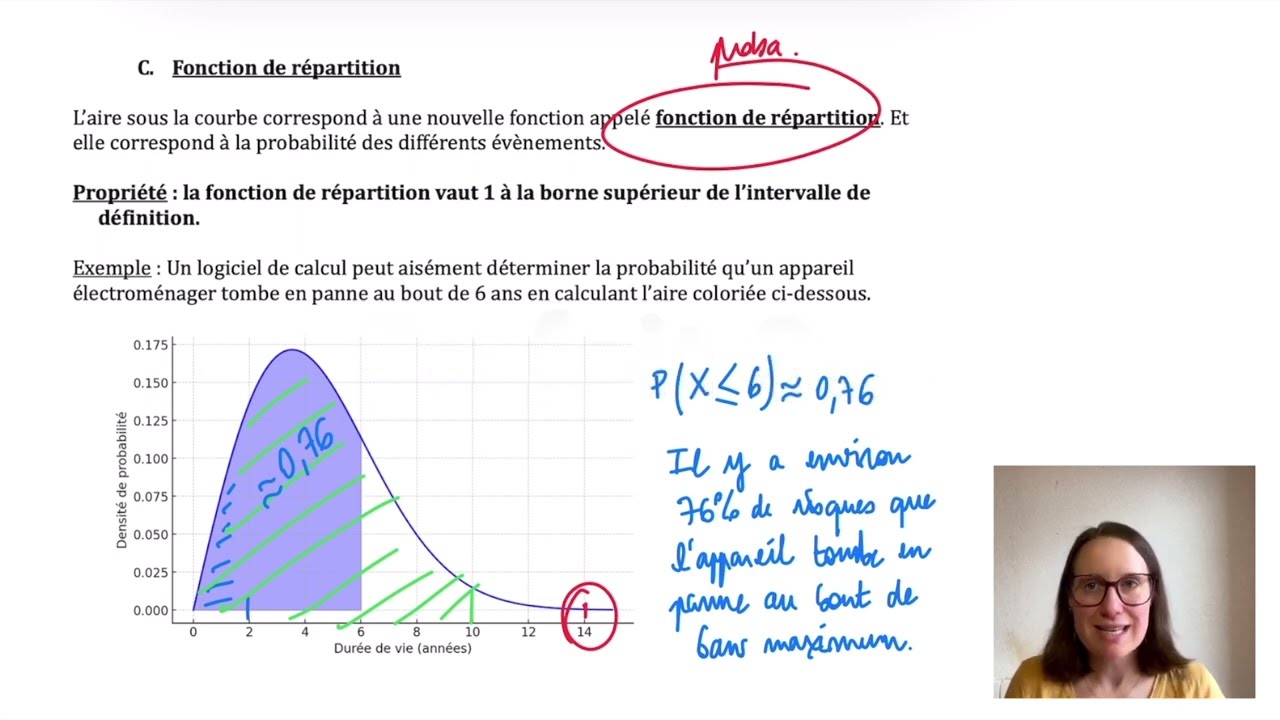 proba.
C. Fonction de répartition
L'aire sous la courbe correspond à une nouvelle fonction appelé fonction de répartition. Et
elle correspond à la probabilité des différents évènements.
Propriété : la fonction de répartition vaut 1 à la borne supérieur de l'intervalle de
définition.
Exemple : Un logiciel de calcul peut aisément déterminer la probabilité qu'un appareil
électroménager tombe en panne au bout de 6 ans en calculant l'aire coloriée ci-dessous.
0.175
0.150
0.125
0.100
0.075
0.050
0.025
0.000
Densité de probabilité
≈0,76
1
0 2 4 6 8 10 12 14
Durée de vie (années)
P(X≤6)≈0,76
Il y a environ
76% de risques que
l'appareil tombe en
panne au bout de
6ans maximum.